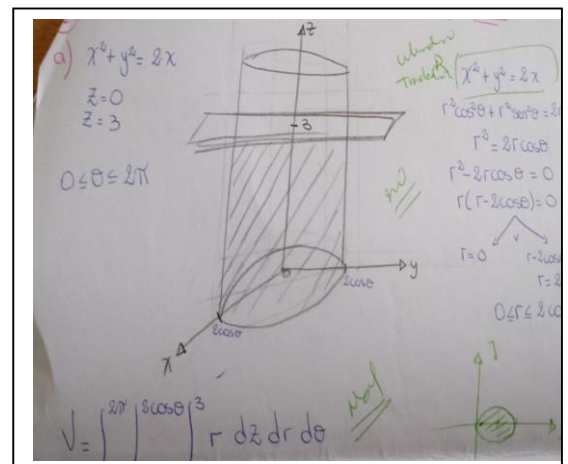 a) x² + y² = 2x
z = 0
z = 3
0 ≤ θ ≤ 2π
z
3
y
x
0
2cosθ
2cosθ
no
x² + y² = 2x
r²cos²θ + r²sen²θ = 2r
r² = 2rcosθ
r² - 2rcosθ = 0
r(r - 2cosθ) = 0
r = 0 r - 2cos
r = 2
0 ≤ r ≤ 2co
V = ∫^2π ∫^2cosθ ∫^3 r dz dr dθ